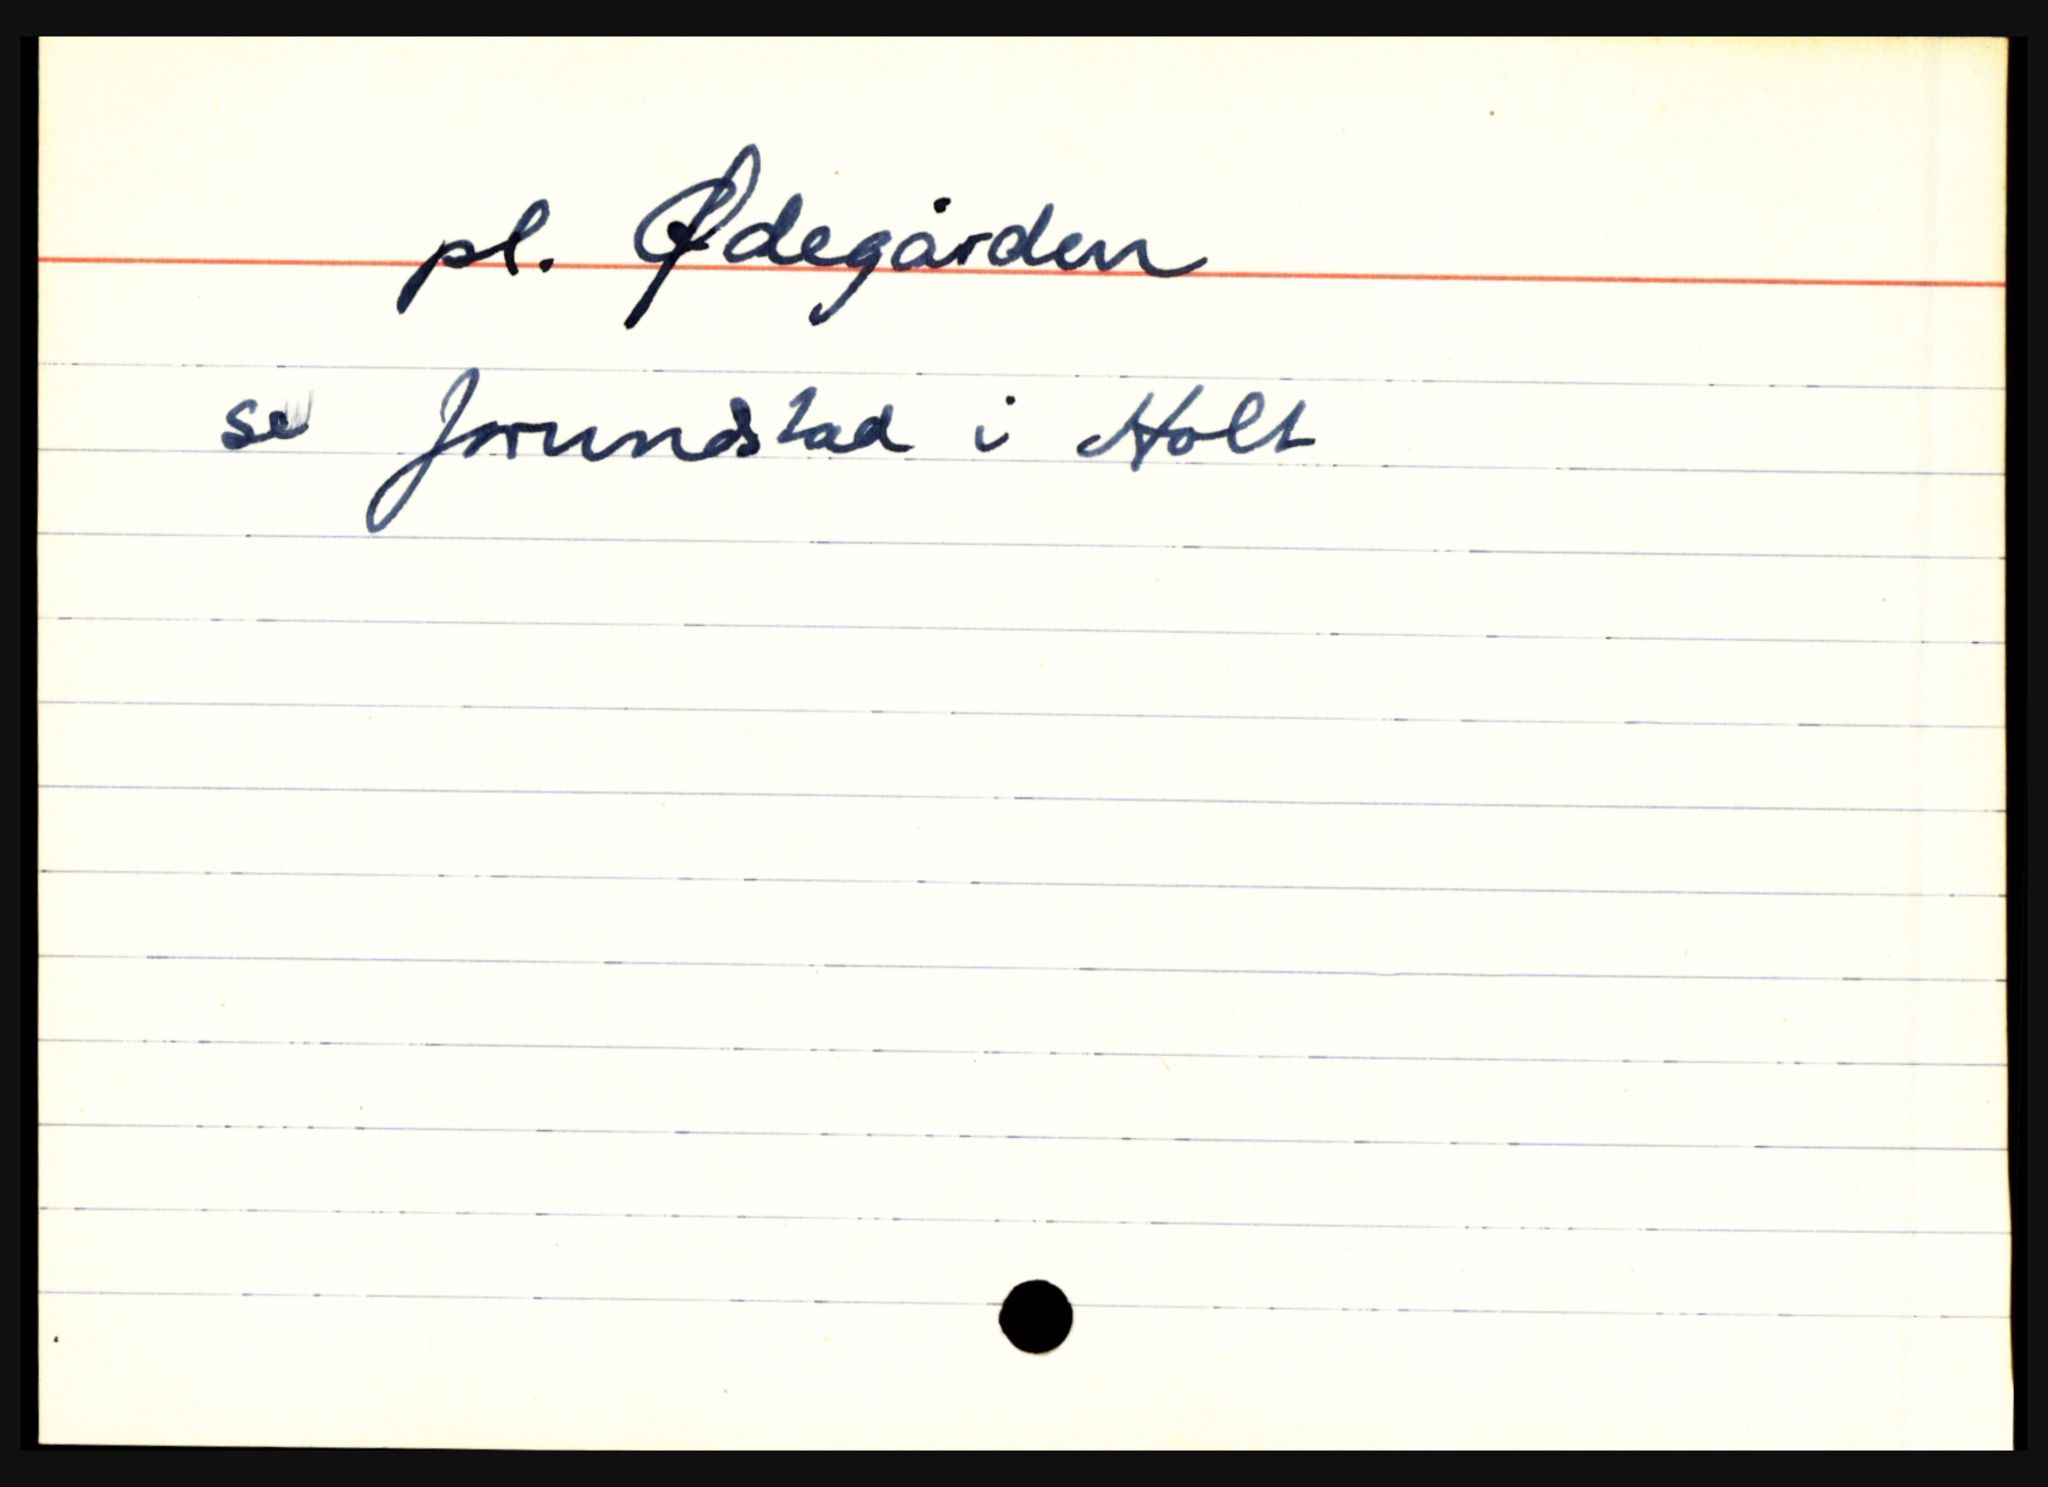 pl. Ødegården
se Jorundstad i Holt